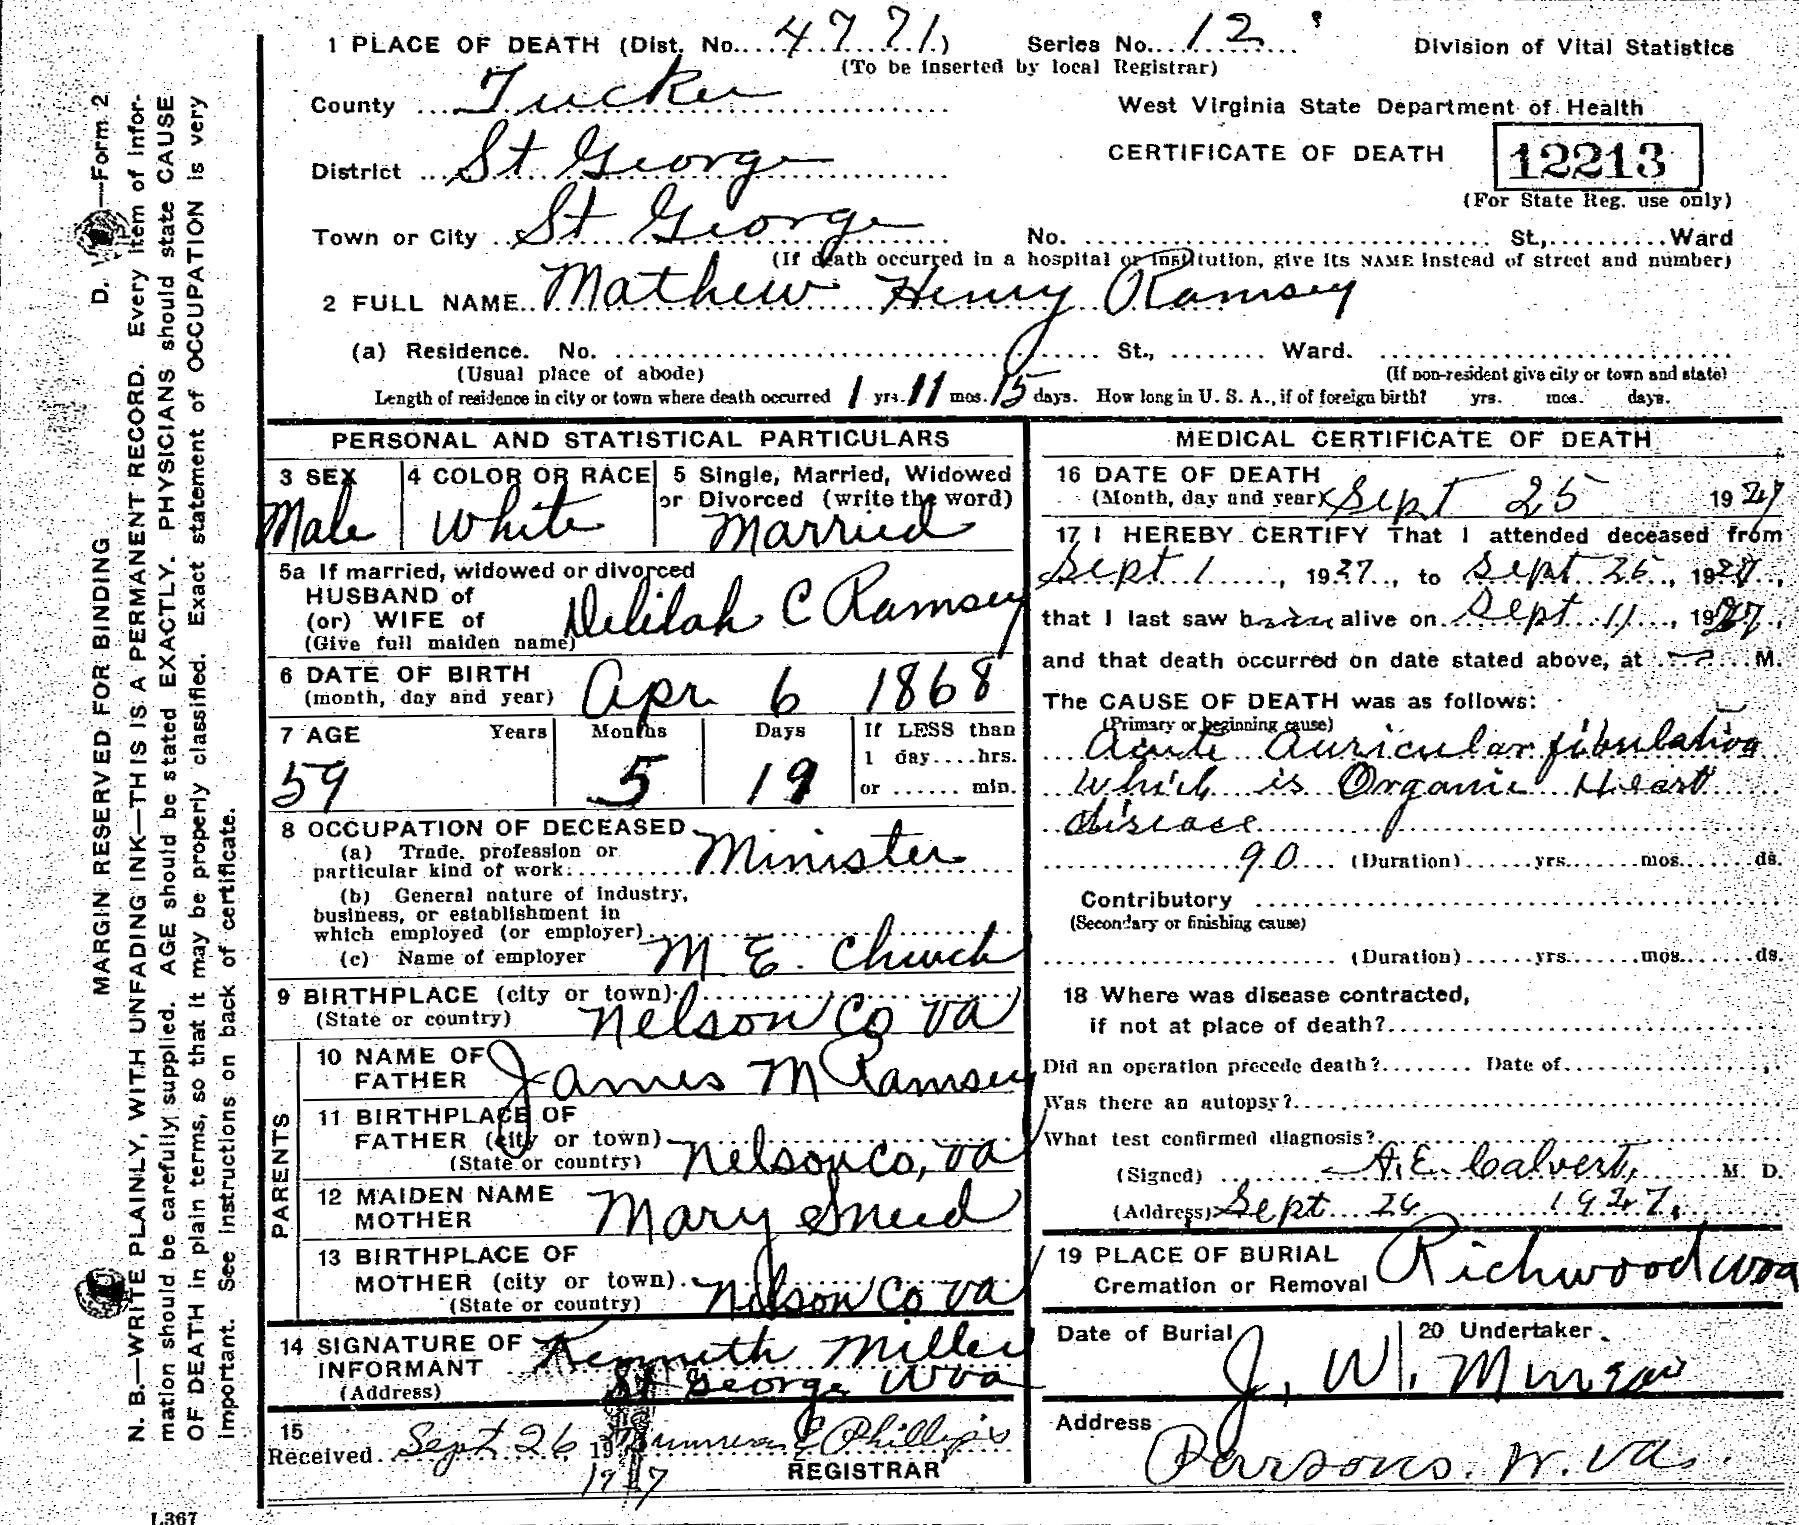 1 PLACE OF DEATH (Dist. No. 4771) Series No. 12 Division of Vital Statistics
(To be inserted by local Registrar)
County Tucker West Virginia State Department of Health
District St George CERTIFICATE OF DEATH 12213
(For State Reg. use only)
Town or City St George No. St., Ward
(If death occurred in a hospital or institution, give its NAME instead of street and number)
2 FULL NAME Mathew Henry Ramsey
(a) Residence. No. St., Ward.
(Usual place of abode) (If non-resident give city or town and state)
Length of residence in city or town where death occurred 1 yrs. 11 mos. 15 days. How long in U. S. A., if of foreign birth? yrs. mos. days.
PERSONAL AND STATISTICAL PARTICULARS
3 SEX 4 COLOR OR RACE 5 Single, Married, Widowed
or Divorced (write the word)
Male White Married
5a If married, widowed or divorced
HUSBAND of
(or) WIFE of Delilah C Ramsey
(Give full maiden name)
6 DATE OF BIRTH
(month, day and year) Apr 6 1868
7 AGE Years Months Days If LESS than
1 day....hrs.
59 5 19 or ...... min.
8 OCCUPATION OF DECEASED
(a) Trade, profession or
particular kind of work: Minister
(b) General nature of industry,
business, or establishment in
which employed (or employer)
(c) Name of employer M. E. Church
9 BIRTHPLACE (city or town)
(State or country) Nelson Co Va
PARENTS
10 NAME OF
FATHER James M Ramsey
11 BIRTHPLACE OF
FATHER (city or town)
(State or country) Nelson Co, Va
12 MAIDEN NAME
MOTHER Mary Sneed
13 BIRTHPLACE OF
MOTHER (city or town)
(State or country) Nelson Co Va
14 SIGNATURE OF
INFORMANT Kenneth Miller
(Address) St George Wva
15
Received Sept 26, 19 Phillips
1927 REGISTRAR
MEDICAL CERTIFICATE OF DEATH
16 DATE OF DEATH
(Month, day and year) Sept 25 1927
17 I HEREBY CERTIFY That I attended deceased from
Sept 1, 1927, to Sept 25, 1927,
that I last saw alive on Sept 11, 1927,
and that death occurred on date stated above, at M.
The CAUSE OF DEATH was as follows:
(Primary or beginning cause)
Acute Auricular fibulation
which is Organic Heart
disease
90 (Duration) yrs. mos. ds.
Contributory
(Secondary or finishing cause)
(Duration) yrs. mos. ds.
18 Where was disease contracted,
if not at place of death?
Did an operation precede death? Date of
Was there an autopsy?
What test confirmed diagnosis?
(Signed) A. E. Calvert, M. D.
(Address) Sept 26 1927.
19 PLACE OF BURIAL
Cremation or Removal Richwood Wva
Date of Burial 20 Undertaker
J. W. Minear
Address
Parsons. W. Va.
D. —Form 2
MARGIN RESERVED FOR BINDING
N. B.—WRITE PLAINLY, WITH UNFADING INK—THIS IS A PERMANENT RECORD. Every item of infor-
mation should be carefully supplied. AGE should be stated EXACTLY. PHYSICIANS should state CAUSE
OF DEATH in plain terms, so that it may be properly classified. Exact statement of OCCUPATION is very
important. See instructions on back of certificate.
L367